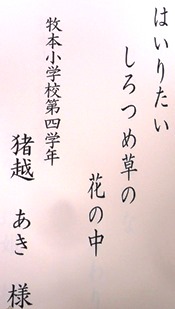 はいりたい
しろつめ草の
花の中
牧本小学校第四学年
猪越 あき 様